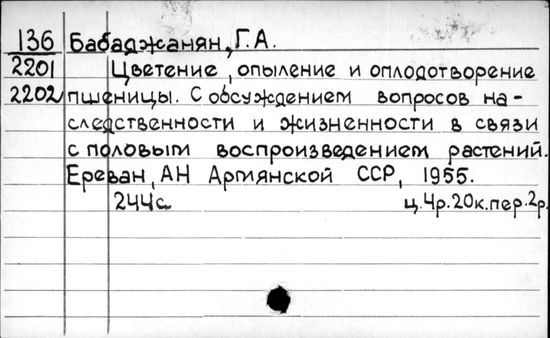 136 Бабаджанян, Г.А.
2201 Цветение, опыление и оплодотворение
2202 пшеницы. С обсуждением вопросов на-
следственности и жизненности в связи
с половым воспроизведением растений.
Ереван, АН Армянской ССР, 1955.
244с ц.4р.20к.пер.2р.